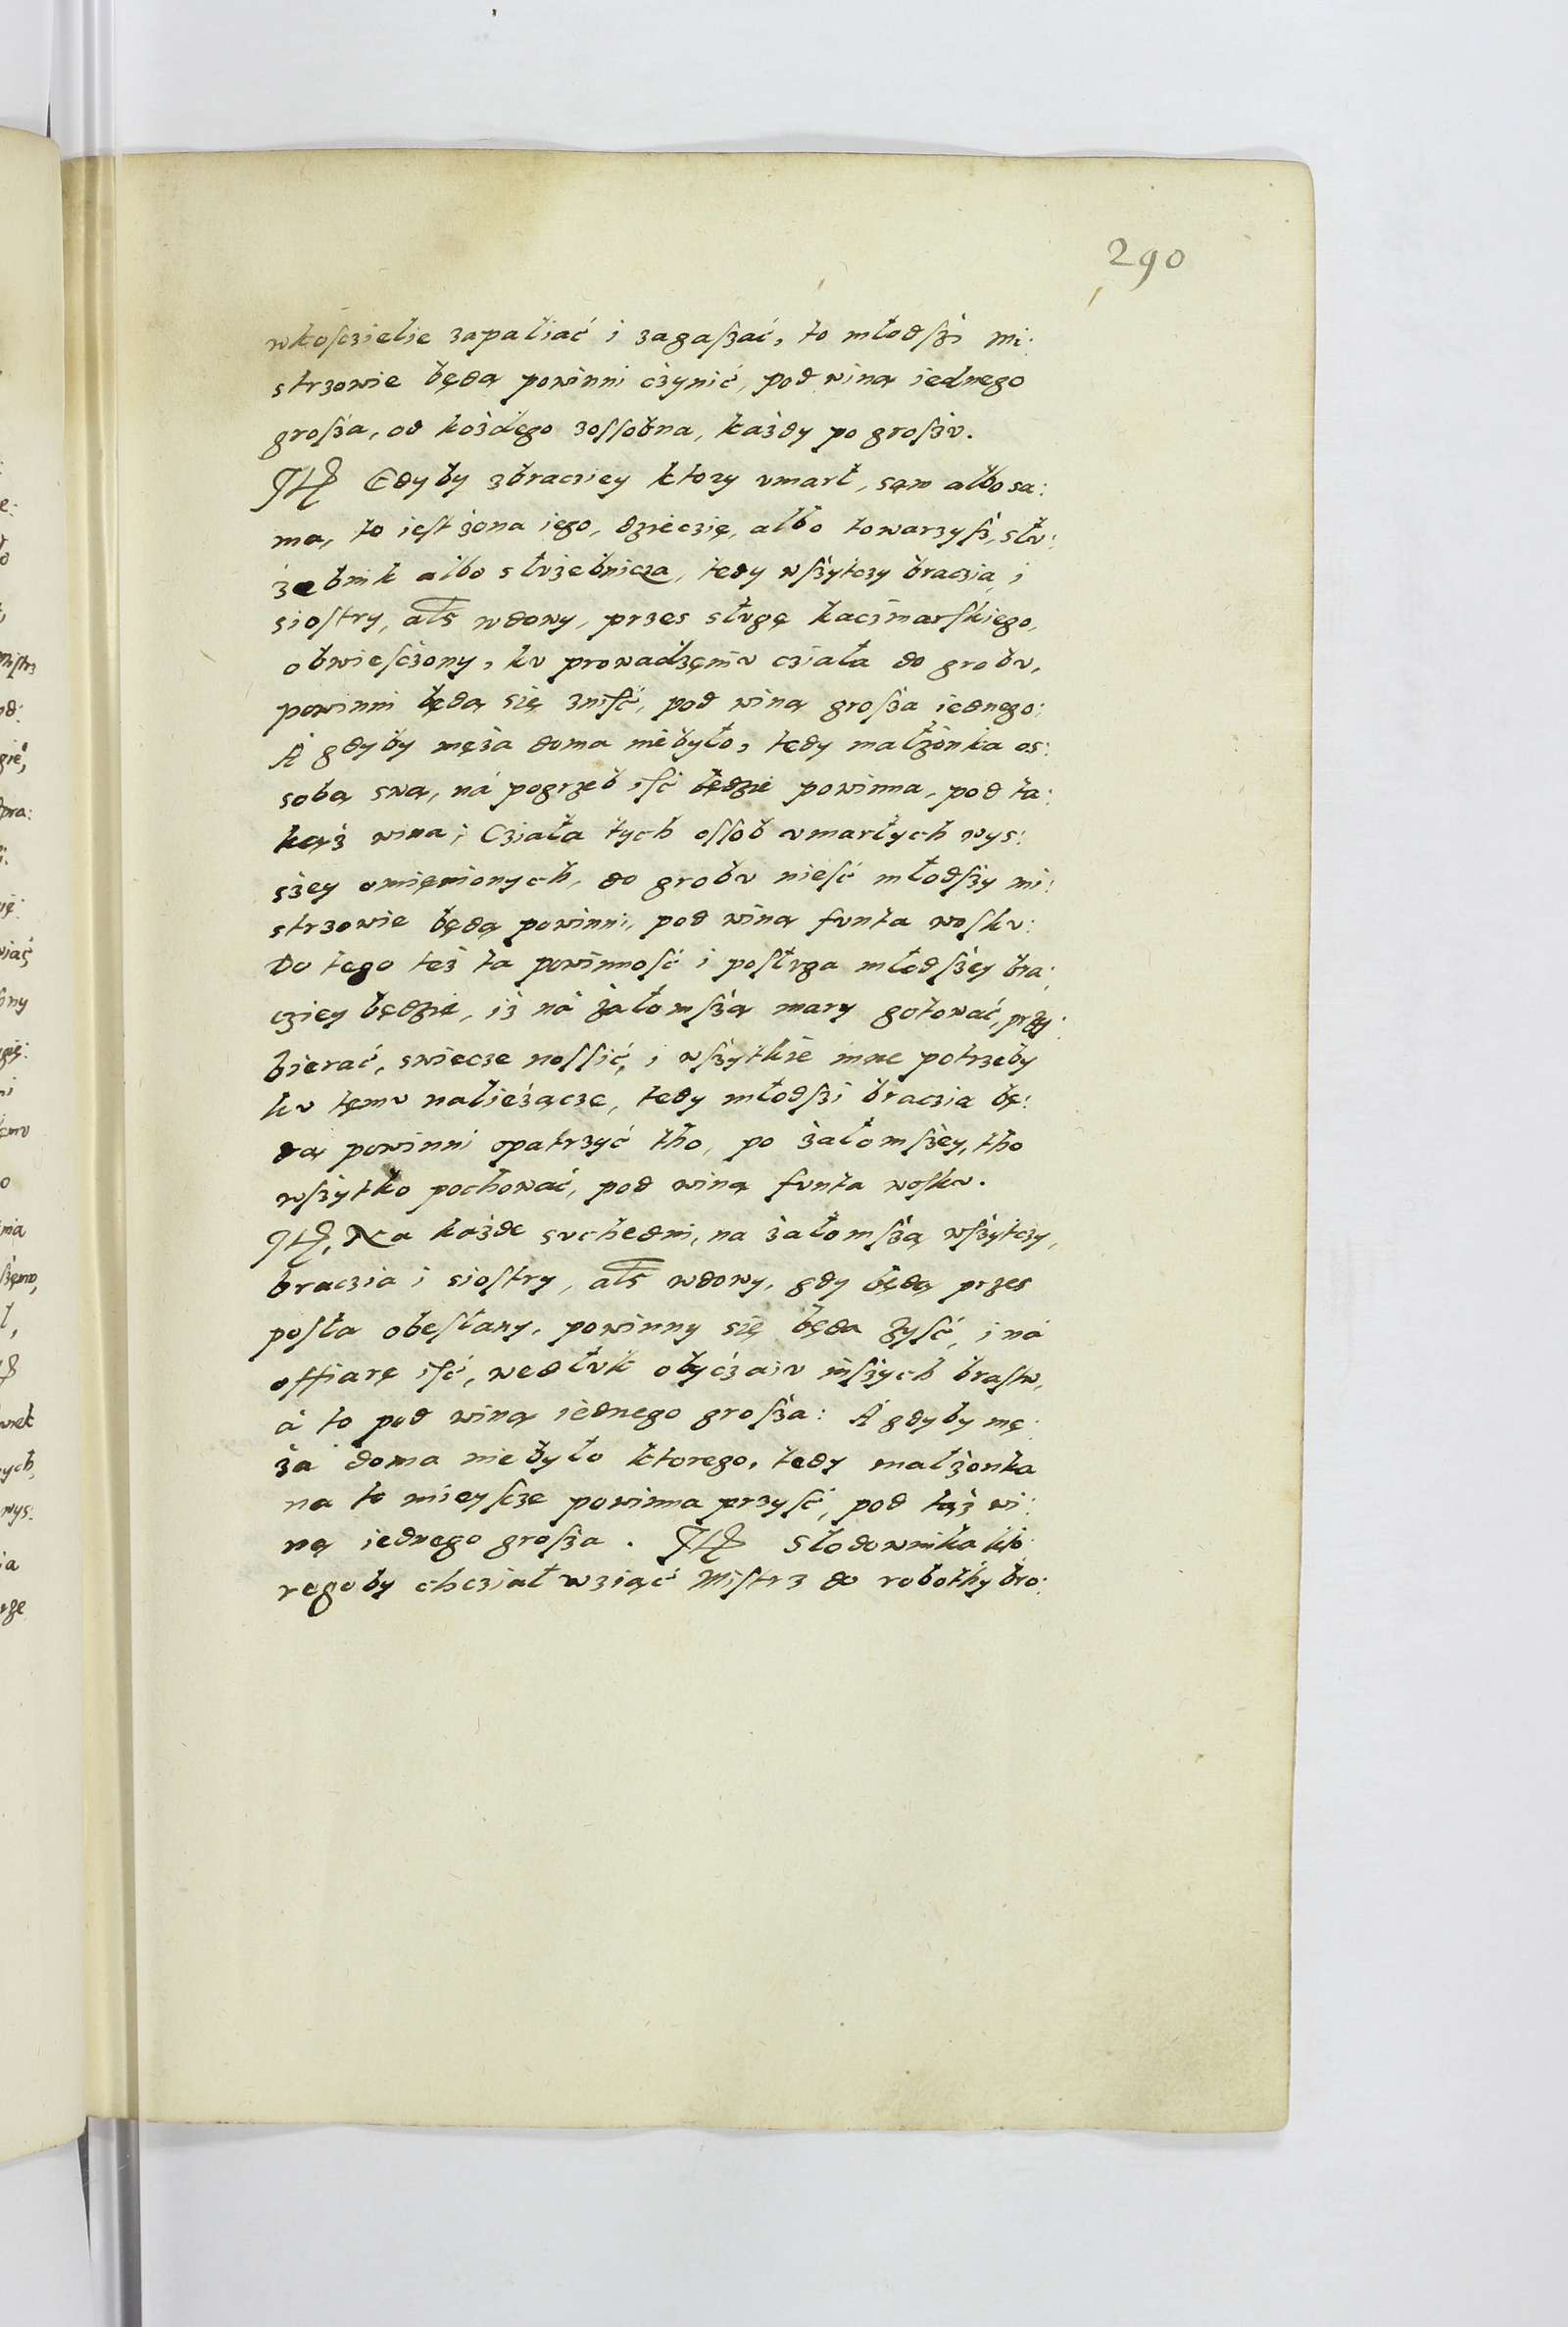 290
wkosczielie zapaliać i zagaszać, to młodszi mi:
strzowie będą powinni czynić, pod winą iednego
grosza, od kożdego zossobna, każdy po groszv.
Itẽ Gdyby zbracziey ktory vmarł, sąm albo sa:
ma, to iest żona iego, dzieczię, albo towarzysz, słv:
żebnik albo słvżebnicza, tedy wszytczy braczia, i
siostry, als wdowy, przes słvgę kaczmarskiego,
obwiesczony, kv prowadzęniv cziała do grobv,
powinni będą się znisć, pod winą grosza iednego:
A gdyby męża doma niebyło, tedy małżonka os:
sobą swą, ná pogrzeb isć będzie powinna, pod ta:
kąż winą; Cziała tych ossob vmarłych wys:
szey omięnionych, do grobv niesć młodszy mi:
strzowie będą powinni, pod winą fvnta woskv:
Do tego też ta powinność i posłvga młodszey bra:
cziey będzie, iż ná żałomszą mary gotować, przy:
bierać, swiecze nossić, i wszytkie inne potrzeby
kv tęmv należącze, tedy młodszi braczia bę:
dą powinni opatrzyć tho, po żałomszey, tho
wszytko pochować, pod winą fvnta woskv.
Itẽ, Na każde svchedni, na żałomszą wszytczy,
braczia i siostry, als wdowy, gdy będą przes
posła obesłany, powinny się będą zysć, i ná
offiarę isć, wedłvk obyczaiv inszych brastw,
á to pod winą iednego grosza: A gdyby mę:
żá doma niebyło ktorego, tedy małżonka
na to mieyscze powinna przysć, pod tąż wi:
ną iednego grosza. Itẽ Słodownika kto:
regoby chcział wziąć Mistrz do robothy bro: